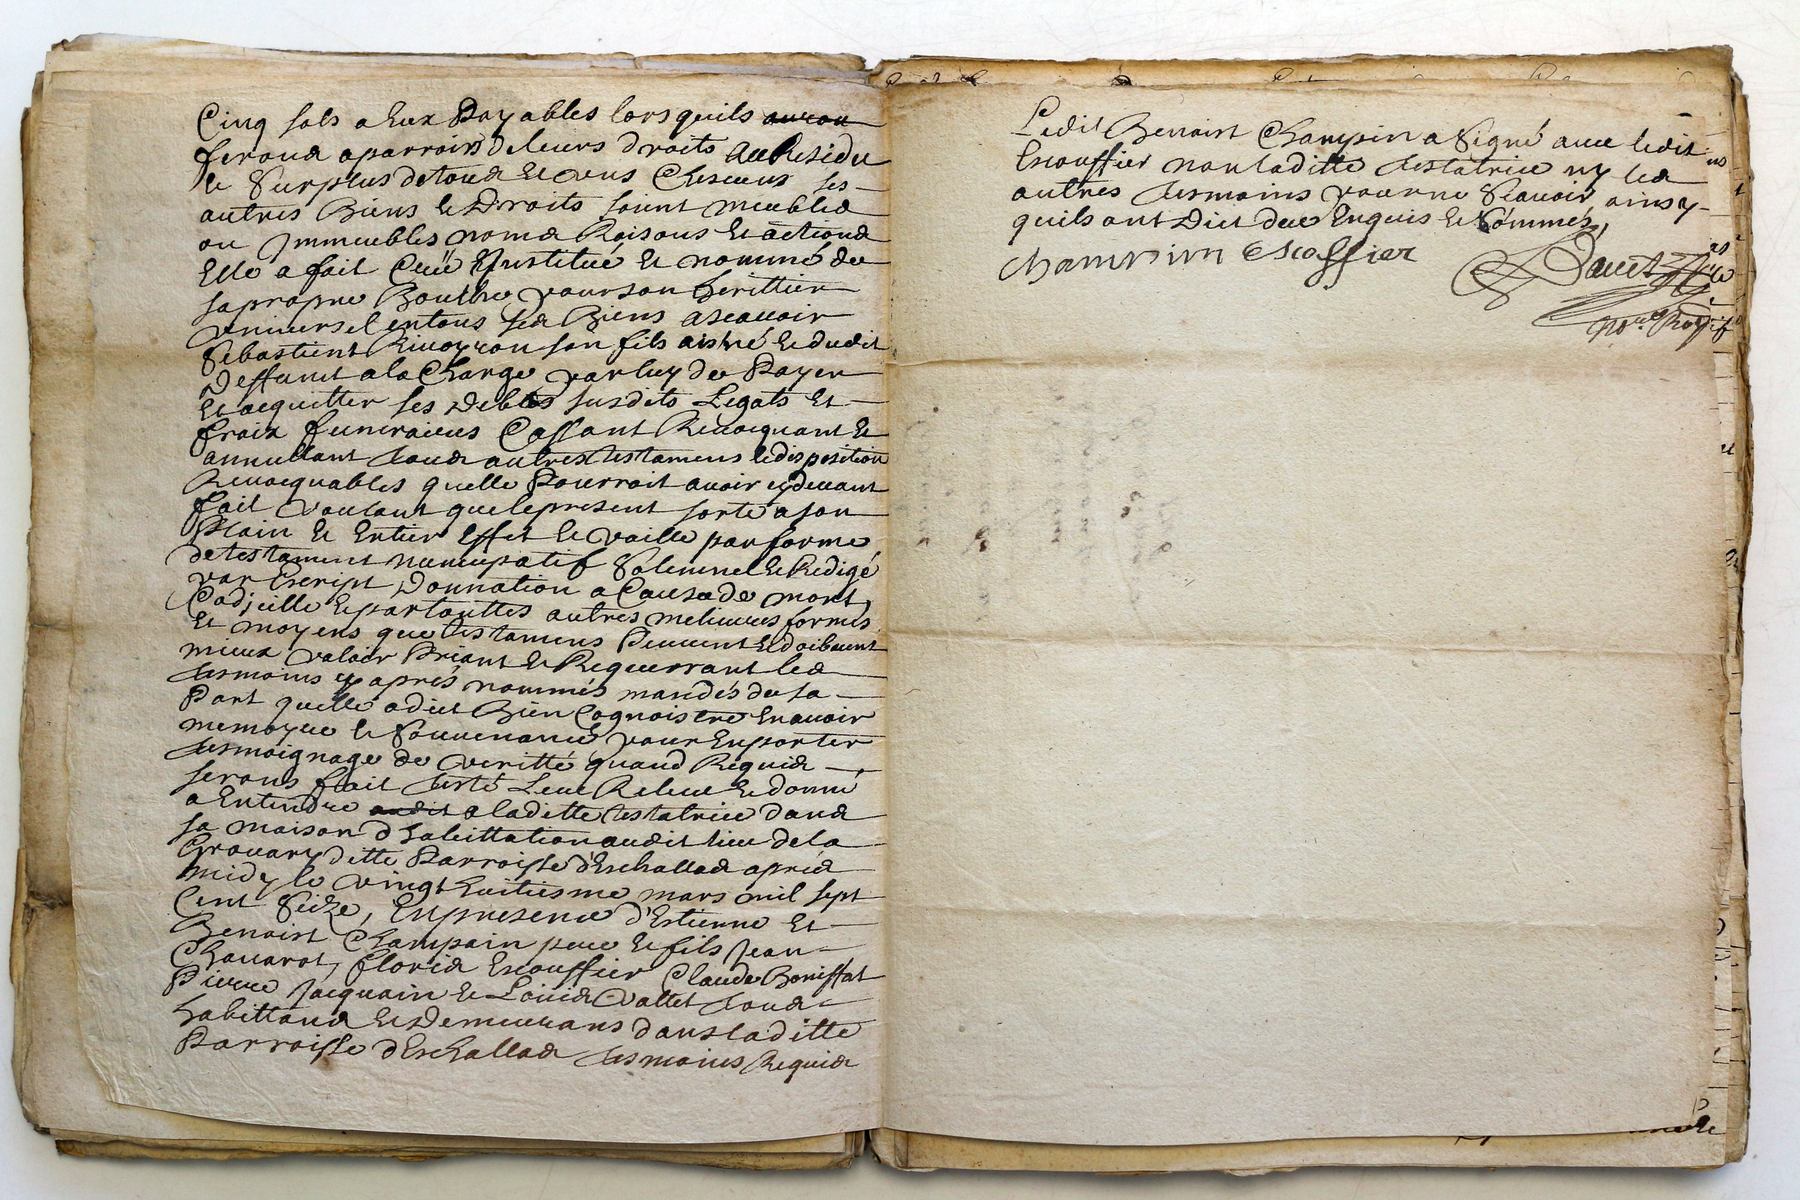 Cinq sols a Eux Payables lors quils auron
feront aparroir de leurs droits Au Residu
le Surplus de tout et uns Chescuns ses
autres Biens et Droits soient meubles
ou Immeubles noms Raisons Et actions
Elle a fait Creé Institué et nommé de
sa propre Bouche pour son herittier
universel en tous ses Biens a scavoir
Sebastient son fils aisné et dudit
Deffunct a la Charge par luy de Payer
Et acquitter ses Debtes susdits Legats Et
fraix funeraiux Cassant Revocquant Et
annullant tous autres testamens et disposition
Revocquables quelle Pourroit avoir cy devant
fait Voulant que le present sorte a son
Plain Et Entier Effet Et Vaille par forme
de testament nuncupatif Solemnel et Redigé
par Escript Donnation a Cause de mort
Codicille Et par touttes autres melieures formes
Et moyens que testamens Peuvent Et doibvent
mieux valoir Priant Et Requerrant les
tesmoins cy aprés nommés mandés de sa
Part quelle a dit Bien Cognoistre En avoir
memoyre et Souvenance pour En porter
tesmoignage de veritté quand Requis
serons fait Leue Releue Et donné
a Entendre audit a laditte testatrice dans
sa maison d'habittation audit lieu de la
ditte Parroisse d'Eschallas aprés
midy le vingt huitiesme mars mil sept
Cent Seize, En presence d'Estienne Et
Benoist Champain pere Et fils Jean
Chavarot, Floris Escouffier Claude Boniffat
Pierre Jacquain Et Louis Vallet tous
habittans Et Demeurans dans laditte
Parroisse d'Eschallas tesmoins Requis
Ledit Benoist Champin a Signé avec ledit
Escouffier non laditte testatrice ny les
autres tesmoins pour ne Scavoir, ainsy
quils ont Dict de ce Enquis Et Sommés,
champin escoffier